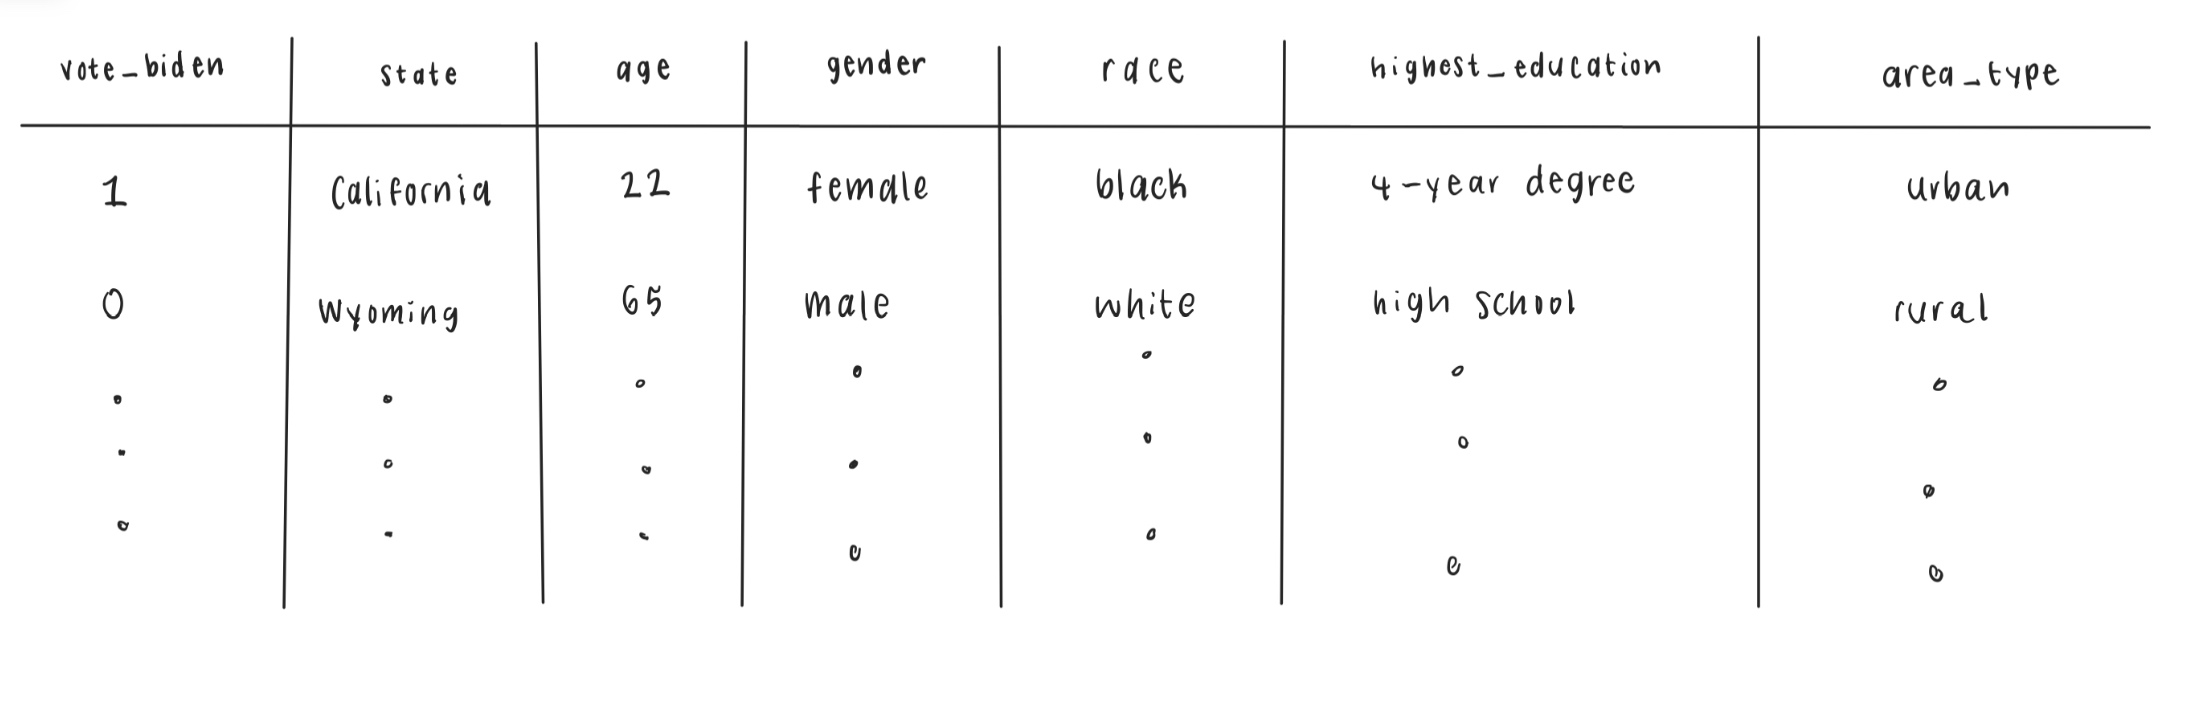 vote_biden state age gender race highest_education area_type
1 California 22 female black 4-year degree urban
0 Wyoming 65 male white high school rural